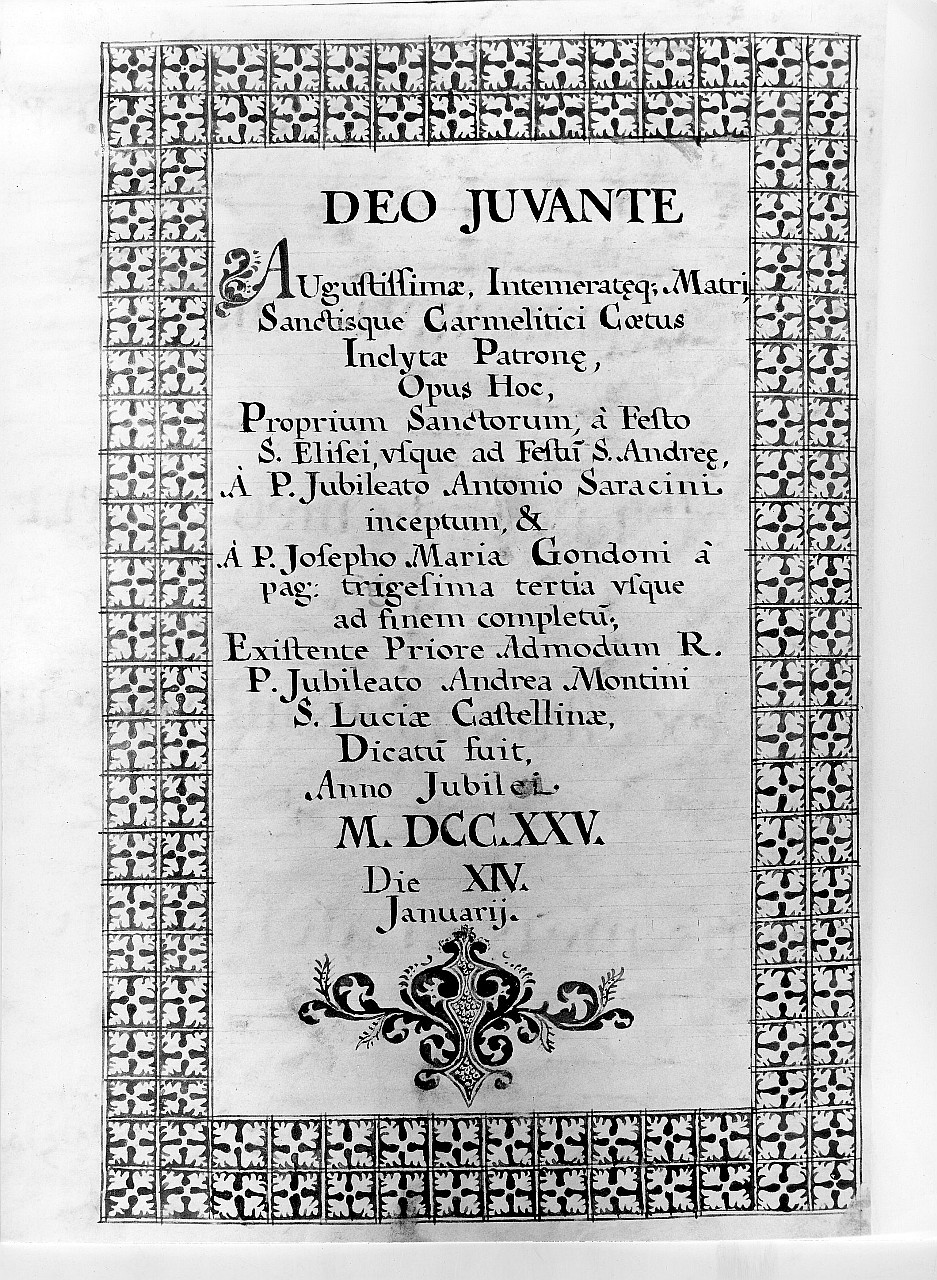 DEO JUVANTE
AUguſtiſſimæ, Intemeratęq; Matri
Sanctisque Carmelitici Cœtus
Inclytæ Patronę,
Opus Hoc,
Proprium Sanctorum, à Feſto
S. Eliſei, vſque ad Feſtū S. Andreę,
À P. Jubileato Antonio Saracini
inceptum, &
À P. Joſepho Maria Gondoni à
pag: trigeſima tertia vſque
ad finem completū;
Exiſtente Priore Admodum R.
P. Jubileato Andrea Montini
S. Luciæ Caſtellinæ,
Dicatū fuit,
Anno Jubilei.
M. DCC.XXV.
Die XIV.
Januarij.